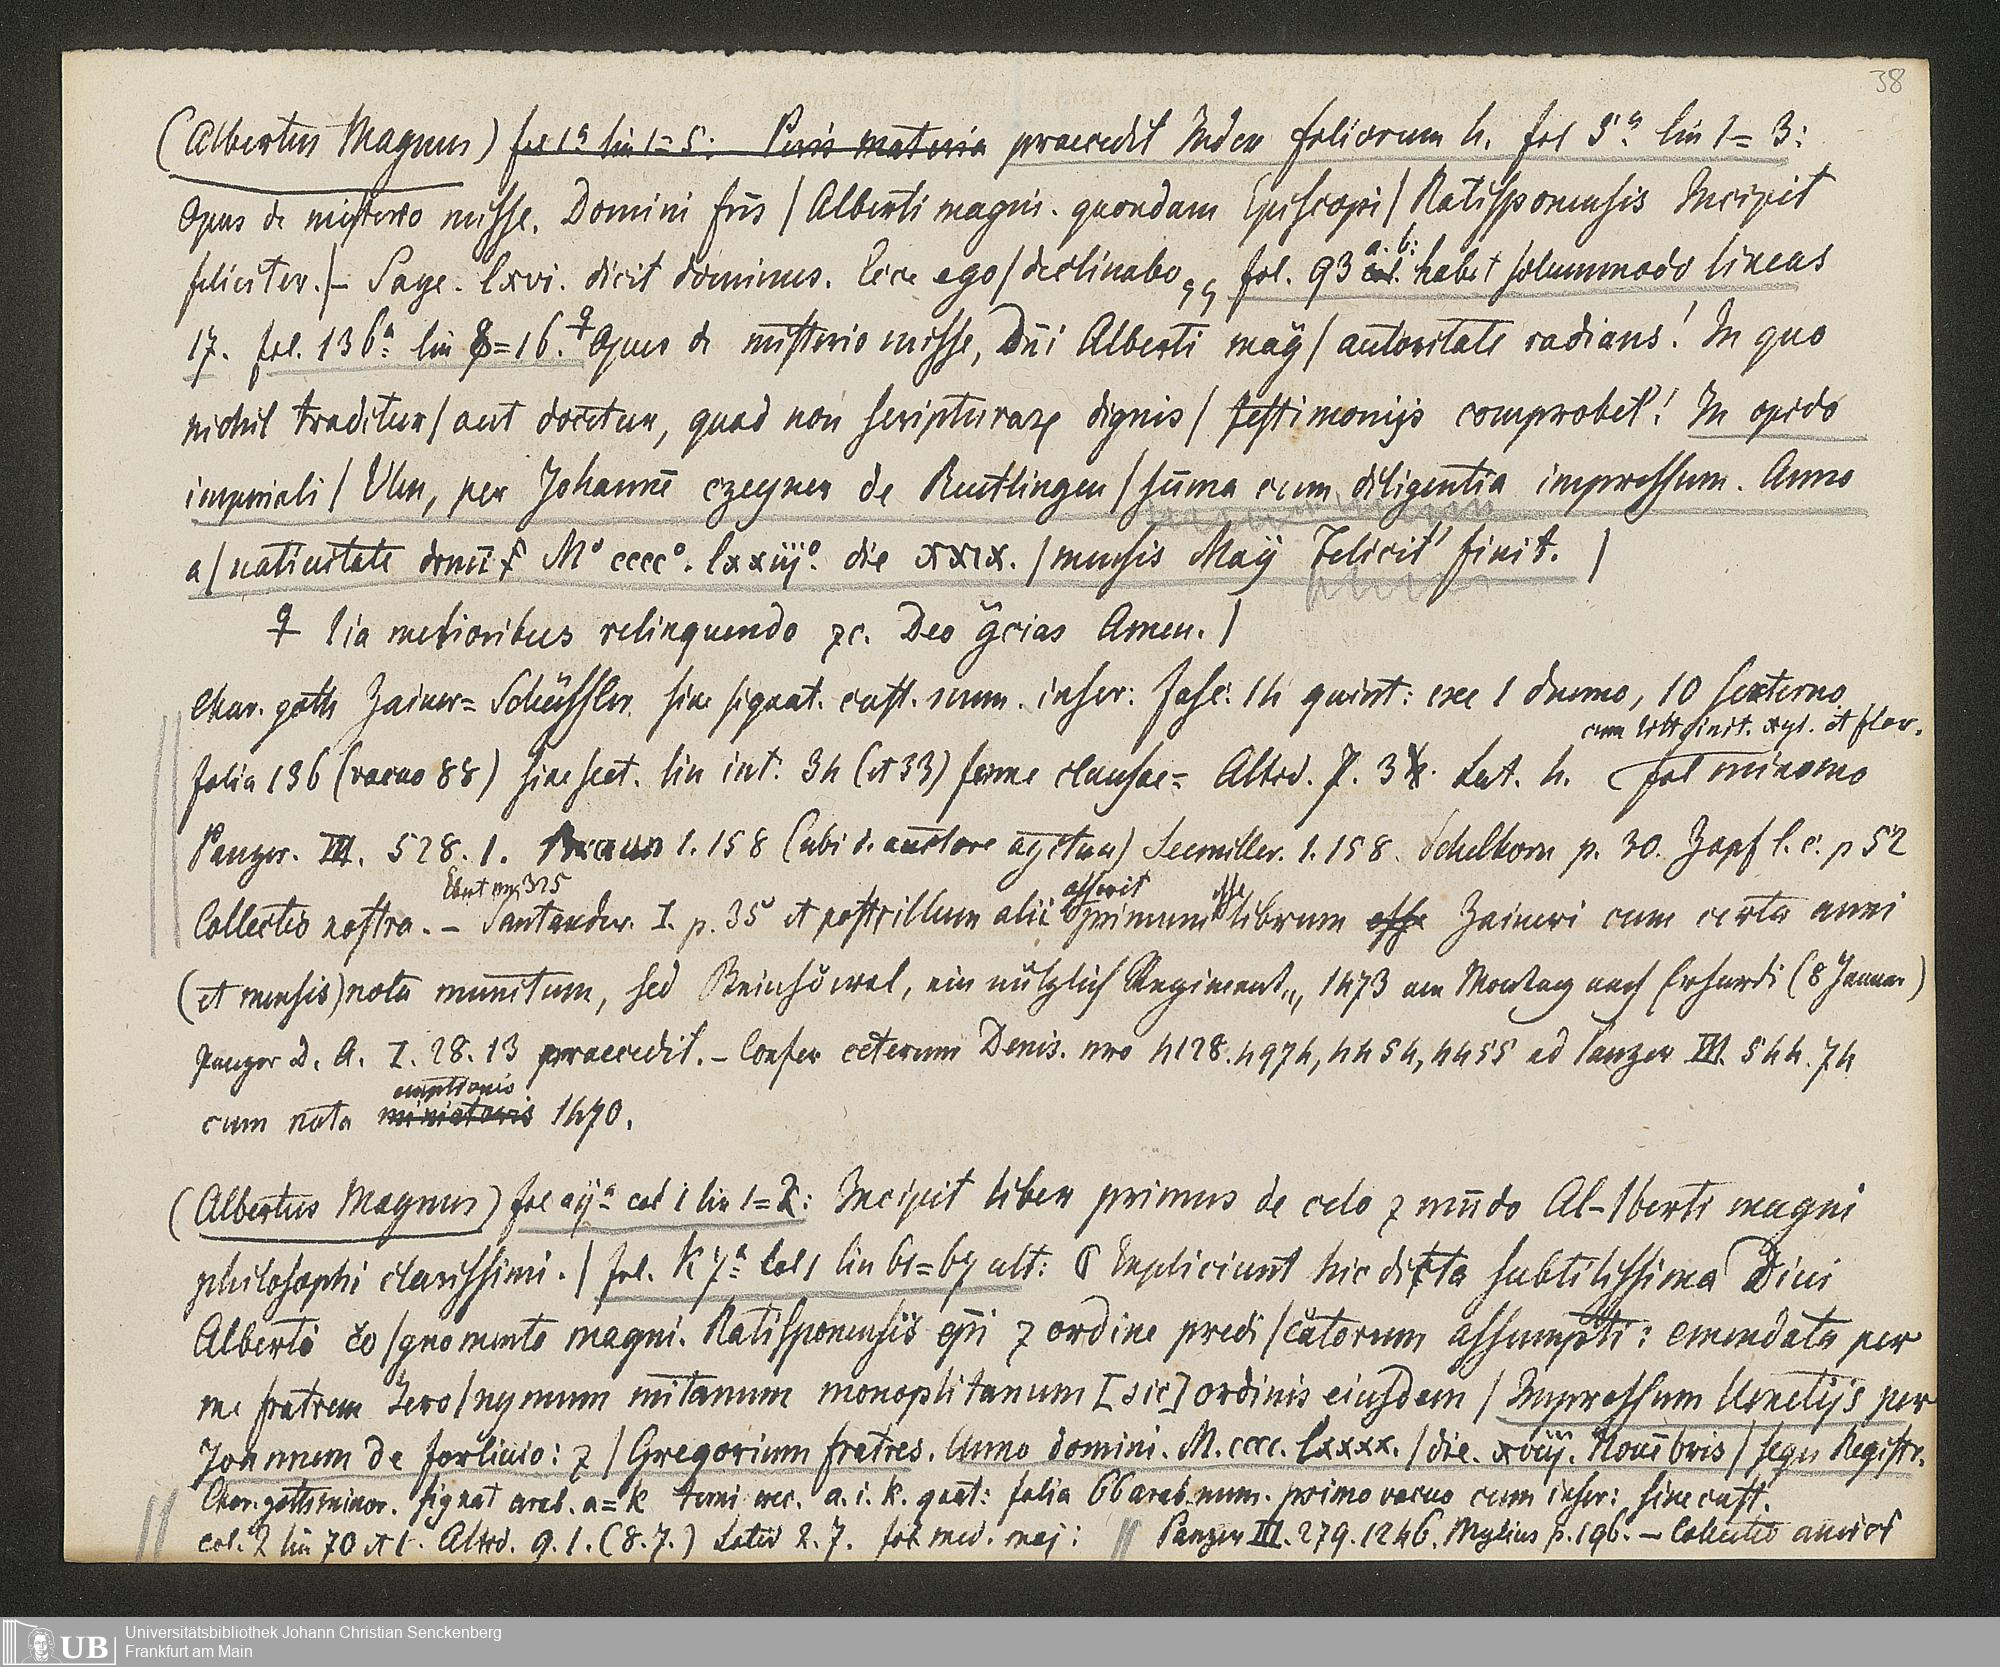 38
(Albertus Magnus) fol 1a lin 1=5: materia praecedit Index foliorum 4. fol 5a lin 1=3:
Opus de misterio misse. Domini fr̄is / Alberti magni. quondam Episcopi / Ratisponensis Incipit
feliciter. /– Saye. lxvi. dicit dominus. Ecce ego / declinabo „ fol. 93 a. b: habet solummodo lineas
17. fol. 136a lin 8=16. Opus de misterio misse, Dn̄i Alberti mag̈ / autoritate radians! In quo
nichil traditur / aut docetur, quod non scripturaꝝ dignis / testimonijs comprobet'! In opido
imperiali / Ulm, per Johannē czeyner de Reutlingen / sūma cum diligentia impressum. Anno
a / natiuitate domīi Mo cccco. lxxiijo. die xxix. / mensis Maÿ Felicit' finit. /
lia melioribus relinquendo ⁊c. Deo gr̄cias Amen. /
Char. goth Zainer= Schüssler sine signat. cust. num. inscr: Fasc: 14 quint: exc 1 duerno, 10 sexterno
cum litt. init. xyl. et flor.
folia 136 (vacuo 88) sine sect. lin int. 34 (et 33) ferme clausae= Altid. 7. 3 Lat. 4. fol minimo
Panzer. III. 528. 1. 1. 158 (ubi d. auctore agitur) Seemiller. 1. 158. Schelhorn p. 30. Zapf l. c. p 52
Ebert nr. 325 asserit esse
Collectio nostra. – Santander. I. p. 35 et post illum alii primum librum esse Zaineri cum certa anni
(et mensis) nota munitum, sed Steinhöwel, ein nützlich Regiment„ 1473 am Montag nach Erhardi (8 Januar)
Panzer D. A. I. 28. 13 praecedit. – Confer ceterum Denis. nro 4128. 4974, 4454, 4455 ad Panzer III. 544. 74
emptionis
cum nota miniatoris 1470.
(Albertus Magnus) fol aija col 1 lin 1=2: Incipit liber primus de celo ⁊ mūdo Al–lberti magni
philosophi clarissimi. / fol. K 7a col 1 lin 61=67 ult: ¶ Expliciunt hic dicta subtilissima Diui
Alberti co / gnomento magni. Ratisponensis ep̄i ⁊ ordine predi / catorum assumpti: emendata per
me fratrem Jero / nymum mitanum monoplitanum [sic] ordinis eiusdem / Impressum Uenetijs per
Joannem de forliuio: ⁊ / Gregorium fratres. Anno domini. M. cccc. lxxxx. / die. xviij. Nouēbris / sequ Registr.
Char. goth minor. signat arab. a=K terni exc. a. i. k. quat: folia 66 arab. num. primo vacuo cum inscr: sine cust.
col. 2 lin 70 et 1. Altid. 9. 1. (8. 7.) Latid 2. 7. fol. med. maj: Panzer III. 279. 1246. Mylius p. 196. – Collectio
Universitätsbibliothek Johann Christian Senckenberg
UB Frankfurt am Main